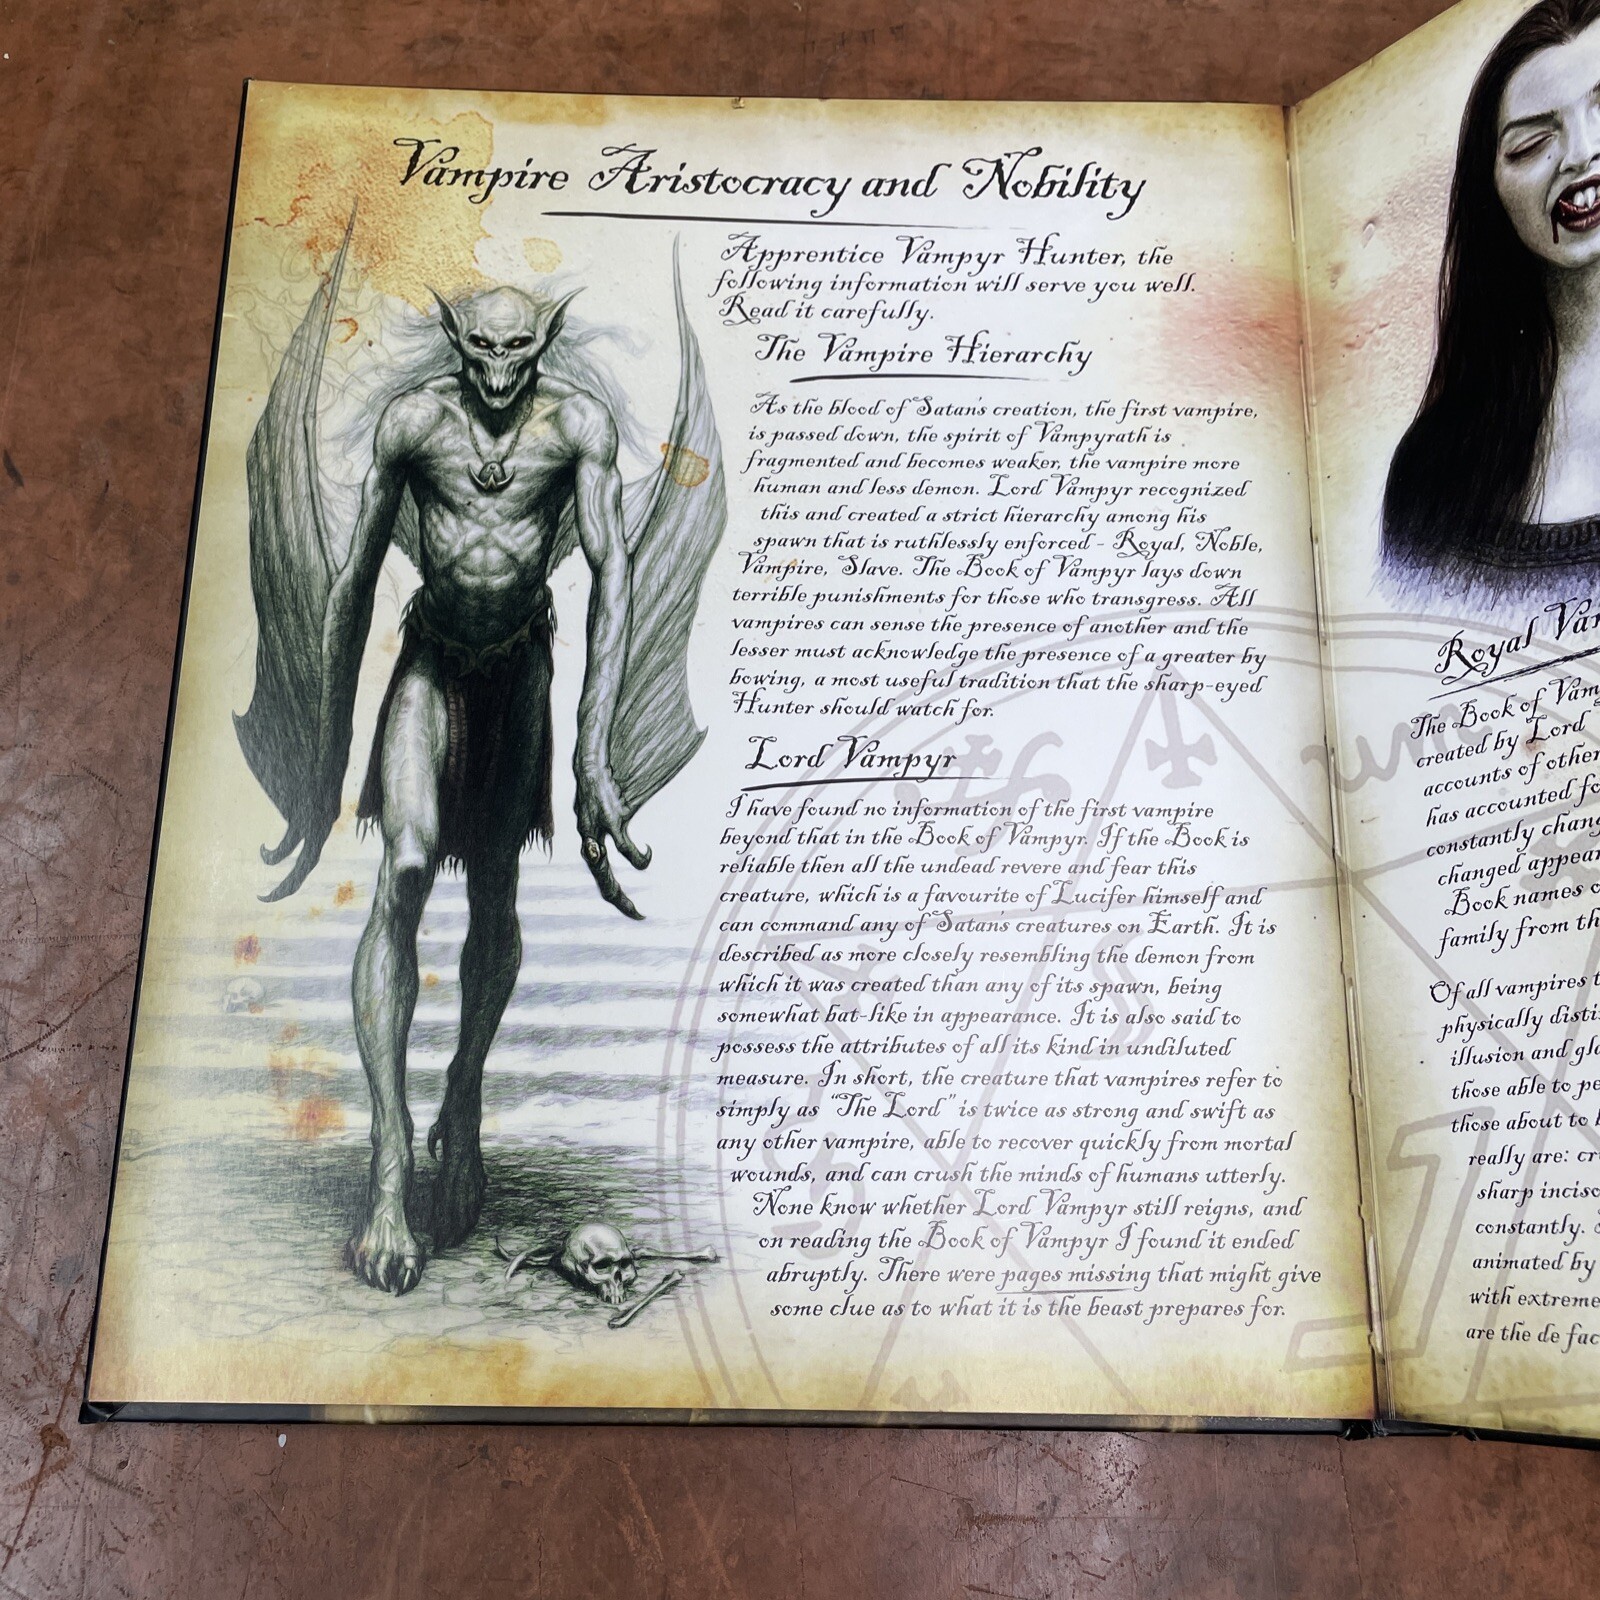 Vampire Aristocracy and Nobility
Apprentice Vampyr Hunter, the
following information will serve you well.
Read it carefully.
The Vampire Hierarchy
As the blood of Satan's creation, the first vampire,
is passed down, the spirit of Vampyrath is
fragmented and becomes weaker, the vampire more
human and less demon. Lord Vampyr recognized
this and created a strict hierarchy among his
spawn that is ruthlessly enforced - Royal, Noble,
Vampire, Slave. The Book of Vampyr lays down
terrible punishments for those who transgress. All
vampires can sense the presence of another and the
lesser must acknowledge the presence of a greater by
bowing, a most useful tradition that the sharp-eyed
Hunter should watch for.
Lord Vampyr
I have found no information of the first vampire
beyond that in the Book of Vampyr. If the Book is
reliable then all the undead revere and fear this
creature, which is a favourite of Lucifer himself and
can command any of Satan's creatures on Earth. It is
described as more closely resembling the demon from
which it was created than any of its spawn, being
somewhat bat-like in appearance. It is also said to
possess the attributes of all its kind in undiluted
measure. In short, the creature that vampires refer to
simply as "The Lord" is twice as strong and swift as
any other vampire, able to recover quickly from mortal
wounds, and can crush the minds of humans utterly.
None know whether Lord Vampyr still reigns, and
on reading the Book of Vampyr I found it ended
abruptly. There were pages missing that might give
some clue as to what it is the beast prepares for.
Royal
The Book of
created by Lord
accounts of
has accounted
constantly
changed
Book names
family from
Of all vampires
physically
illusion and
those able to
those about to
really are:
sharp
constantly.
animated by
with
are the de